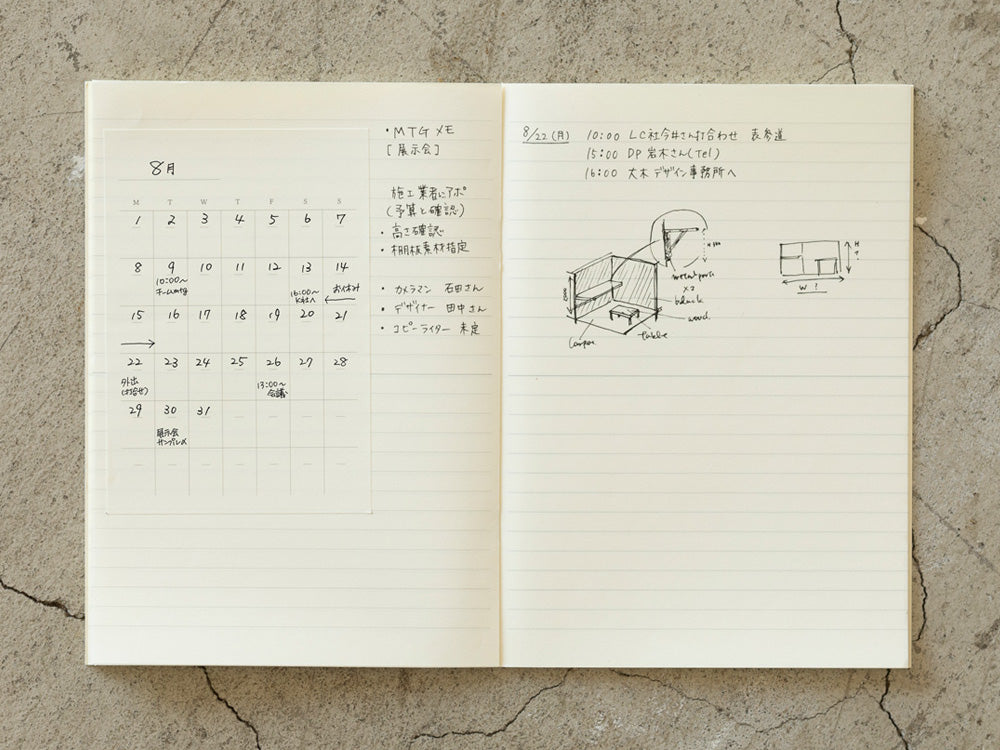 8月
M T W T F S S
1 2 3 4 5 6 7
8 9 10 11 12 13 14
10:00〜
チームmtg
16:00〜
K社へ
お休み
15 16 17 18 19 20 21
22 23 24 25 26 27 28
外出
(打合せ)
13:00〜
会議
29 30 31
展示会
サンプル〆
・MTGメモ
[展示会]
施工業者にアポ
(予算と確認)
・高さ確認
・棚板素材指定
・カメラマン 石田さん
・デザイナー 田中さん
・コピーライター 未定
8/22(月) 10:00 LC社今井さん打合わせ 表参道
15:00 DP岩木さん(Tel)
16:00 大木デザイン事務所へ
×2
black
wood
table
H?
W?